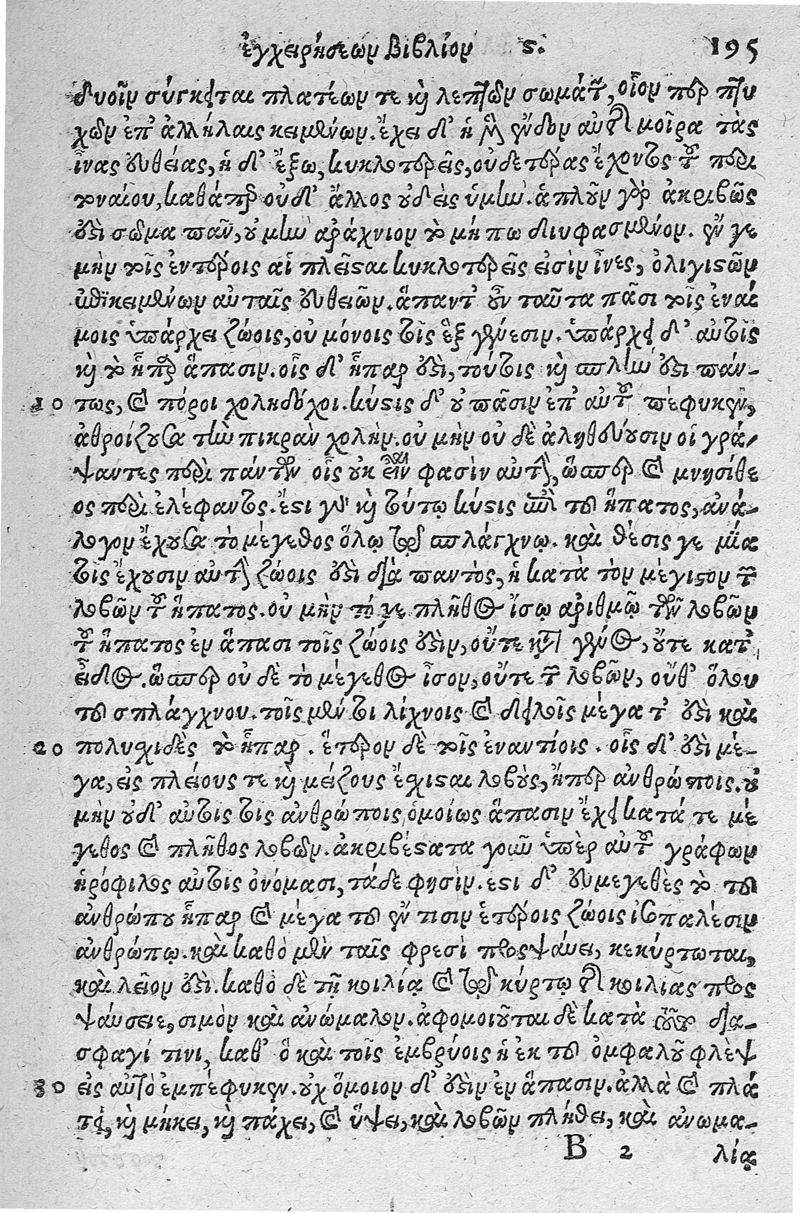 ἐγχειρήσεων Βιβλίον ϛ. 195
δυοῖν σύγκειται πλατέων τε καὶ λεπτῶν σωμάτων, οἷον περ πτυ
χῶν ἐπ' ἀλλήλαις κειμένων. ἔχει δ' ἡ μὲν ἔνδον αὐτῆς μοῖρα τὰς
ἶνας εὐθείας, ἡ δ' ἔξω, κυκλοτερεῖς, οὐδετέρας ἔχοντος τοῦ περι
τοναίου, καθάπερ οὐδ' ἄλλος οὐδεὶς ὑμήν. ἁπλοῦν γὰρ ἀκριβῶς
ἐστὶ σῶμα πᾶν, οὐ μὴν ἀράχνιον τὸ μήπω διυφασμένον. ἔν γε
μὴν τοῖς ἐντέροις αἱ πλεῖσται κυκλοτερεῖς εἰσὶν ἶνες, ὀλιγίστων
ἐπικειμένων αὐταῖς εὐθειῶν. ἅπαντ' οὖν ταῦτα πᾶσι τοῖς ἐναί
μοις ὑπάρχει ζώοις, οὐ μόνοις τοῖς ἓξ γένεσιν. ὑπάρχει δ' αὐτοῖς
καὶ τὸ ἧπαρ ἅπασιν. οἷς δ' ἧπαρ ἐστὶ, τούτοις καὶ σπλὴν ἐστι πάν-
10 τως, καὶ πόροι χοληδόχοι. κύστις δ' οὐ πᾶσιν ἐπ' αὐτοῦ πέφυκεν,
ἀθροίζουσα τὴν πικρὰν χολὴν. οὐ μὴν οὐδὲ ἀληθεύουσιν οἱ γρά-
ψαντες περὶ πάντων οἷς οὐκ εἶναι φασὶν αὐτὴν, ὥσπερ καὶ μνησίθε
ος περὶ ἐλέφαντος. ἔστι γὰρ καὶ τούτῳ κύστις ἐπὶ τοῦ ἥπατος, ἀνά-
λογον ἔχουσα τὸ μέγεθος ὅλῳ τῷ σπλάγχνῳ. καὶ θέσις γε μία
τοῖς ἔχουσιν αὐτὴν ζώοις ἐστὶ διὰ παντὸς, ἡ κατὰ τὸν μέγιστον τῶν
λοβῶν τοῦ ἥπατος. οὐ μὴν τό γε πλῆθος ἴσῳ ἀριθμῷ τῶν λοβῶν
τοῦ ἥπατος ἐν ἅπασι τοῖς ζώοις ἐστὶν, οὔτε κατὰ γένος, οὔτε κατ'
εἶδος. ὥσπερ οὐδὲ τὸ μέγεθος ἴσον, οὔτε τῶν λοβῶν, οὔθ' ὅλου
τοῦ σπλάγχνου. τοῖς μέν τοι λίχνοις καὶ δειλοῖς μέγα τ' ἐστὶ καὶ
20 πολυχιδὲς τὸ ἧπαρ. ἕτερον δὲ τοῖς ἐναντίοις. οἷς δ' ἐστὶ μέ-
γα, εἰς πλείους τε καὶ μείζους ἔσχισται λοβοὺς, ἤπερ ἀνθρώποις. οὐ
μὴν οὐδ' αὐτοῖς τοῖς ἀνθρώποις ὁμοίως ἅπασιν ἔχει κατά τε μέ
γεθος καὶ πλῆθος λοβῶν. ἀκριβέστατα γοῦν ὑπὲρ αὐτοῦ γράφων
ἡρόφιλος αὐτοῖς ὀνόμασι, τάδε φησὶν. ἔστι δ' εὐμεγεθὲς τὸ τοῦ
ἀνθρώπου ἧπαρ καὶ μέγα τοῦ ἔν τισιν ἑτέροις ζώοις ἰσοπαλέσιν
ἀνθρώπῳ. καὶ καθὸ μὲν ταῖς φρεσὶ προσψάυει, κεκύρτωται,
καὶ λεῖον ἐστὶ. καθὸ δὲ τῇ κοιλίᾳ καὶ τῷ κύρτῳ τῆς κοιλίας προσ
ψάυσειε, σιμὸν καὶ ἀνώμαλον. ἀφομοιοῦται δὲ κατὰ τοῦτο δια-
σφαγί τινι, καθ' ὃ καὶ τοῖς ἐμβρύοις ἡ ἐκ τοῦ ὀμφαλοῦ φλὲψ
30 εἰς αὐτὸ ἐμπέφυκεν. οὐχ ὅμοιον δ' ἐστὶν ἐν ἅπασιν. ἀλλὰ καὶ πλά
τει, καὶ μήκει, καὶ πάχει, καὶ ὕψει, καὶ λοβῶν πλήθει, καὶ ἀνωμα-
B 2 λίᾳ